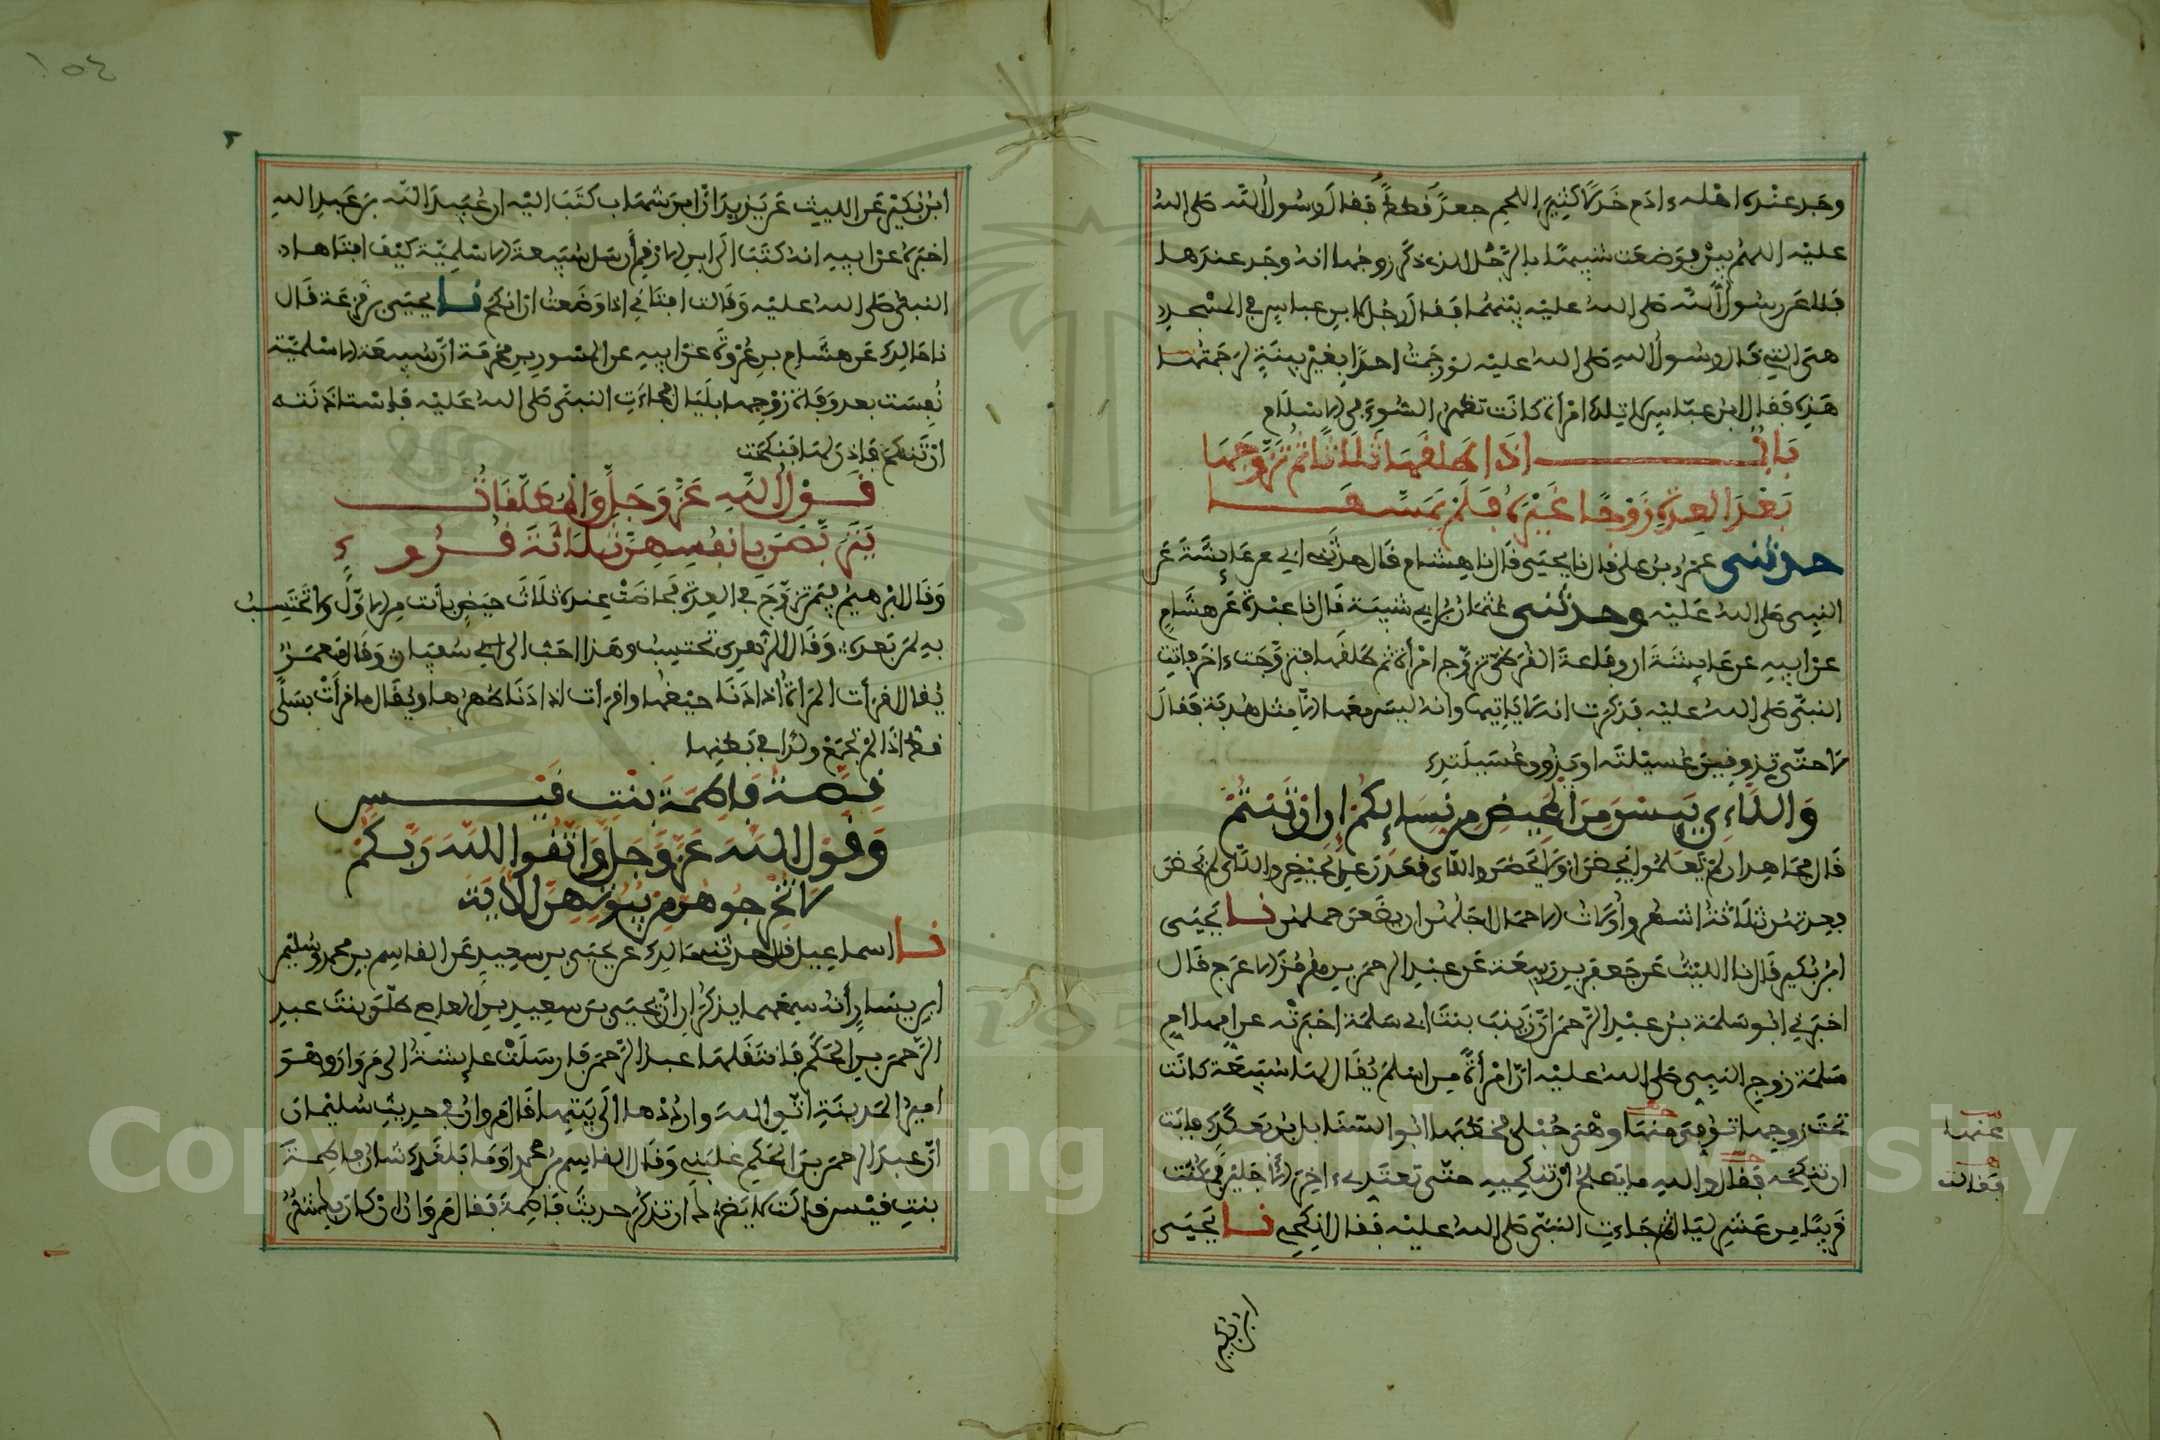 وجد عنده اهله ءادم خدلا كثير اللحم جعدا قططا فقال رسول الله صلى الله
عليه اللهم بين فوضعت شبيها بالرجل الذي ذكر زوجها انه وجد عندها
فلاعن رسول الله صلى الله عليه بينهما فقال رجل لابن عباس في المجلس
هي التي قال رسول الله صلى الله عليه لو رجمت احدا بغير بينة لرجمت
هذه فقال ابن عباس لا تلك امرأة كانت تظهر السوء في الاسلام
باب اذا طلقها ثلاثا ثم تزوجها
بعد العدة زوجا غيره فلم يمسها
حدثني عمرو بن علي قال نا يحيى قال نا هشام قال حدثني ابي عن عائشة عن
النبي صلى الله عليه وحدثني عثمان بن ابي شيبة قال نا عبدة عن هشام
عن ابيه عن عائشة ان رفاعة القرظي تزوج امرأة ثم طلقها فتزوجت ءاخر فاتت
النبي صلى الله عليه فذكرت انه لا ياتيها وانه ليس معه الا مثل هدبة فقال
لا حتى تذوقين عسيلته او يذوق عسيلتك
واللاءي يئسن من المحيض من نسائكم ان ارتبتم
قال مجاهد ان لم تعلموا يحضن او لا يحضن واللاي قعدن عن المحيض واللاي لم يحضن
فعدتهن ثلاثة اشهر وأولات الاحمال اجلهن ان يضعن حملهن نا يحيى
ابن بكير قال نا الليث عن جعفر بن ربيعة عن عبد الرحمن بن هرمز الاعرج قال
اخبرني ابو سلمة بن عبد الرحمن ان زينب بنت ابي سلمة اخبرته عن امها ام
سلمة زوج النبي صلى الله عليه ان امرأة من اسلم يقال لها سبيعة كانت
تحت زوجها توفي عنها وهي حبلى فخطبها ابو السنابل بن بعكك فابت
عنها
ان تنكحه فقال والله ما يصلح ان تنكحيه حتى تعتدي ءاخر الأجلين فمكثت
فقالت
قريبا من عشر ليال ثم جاءت النبي صلى الله عليه فقال انكحي نا يحيى
ابن بكير
١٥٤
ابن بكير عن الليث عن يزيد ان ابن شهاب كتب اليه ان عبيد الله بن عبد الله
اخبره عن ابيه انه كتب الى ابن الارقم أن سل سبيعة الاسلمية كيف افتاها
النبي صلى الله عليه وقالت افتاني اذا وضعت ان انكح نا يحيى بن قزعة قال
نا مالك عن هشام بن عروة عن ابيه عن المسور بن مخرمة ان سبيعة الاسلمية
نفست بعد وفاة زوجها بليال فجاءت النبي صلى الله عليه فاستاذنته
ان تنكح فاذن لها فنكحت
قول الله عز وجل والمطلقات
يتربصن بانفسهن ثلاثة قروء
وقال ابرهيم فيمن تزوج في العدة فحاضت عنده ثلاث حيض بانت من الاول ولا تحتسب
به لمن بعده وقال الزهري تحتسب وهذا احب الى سفيان وقال معمر
يقال اقرأت المرأة اذا دنا حيضها واقرأت اذا دنا طهرها ويقال ما قرأت بسلى
قط اذا لم تجمع ولدا في بطنها
قصة فاطمة بنت قيس
وقول الله عز وجل واتقوا الله ربكم
لا تخرجوهن من بيوتهن الاية
نا اسماعيل قال حدثني مالك عن يحيى بن سعيد عن القاسم بن محمد وسليمن
ابن يسار أنه سمعهما يذكران ان يحيى بن سعيد بن العاصي طلق بنت عبد
الرحمن بن الحكم فانتقلها عبد الرحمن فارسلت عائشة الى مروان وهو
امير المدينة اتق الله وارددها الى بيتها قال مروان في حديث سليمان
ان عبد الرحمن بن الحكم غلبني وقال القاسم بن محمد اوما بلغك شان فاطمة
بنت قيس قالت لا يضرك ان تذكر حديث فاطمة فقال مروان ان كان بك شر
Copyright © King Saud University